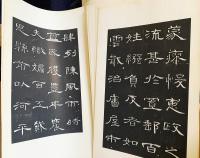 蒙恢惙東政之
流甚於置郵百
姓繈負反者如
雲戢治廬屋市
肆列陳風雨時
節歲獲豐年農
夫織婦百工戴
恩縣前以河平